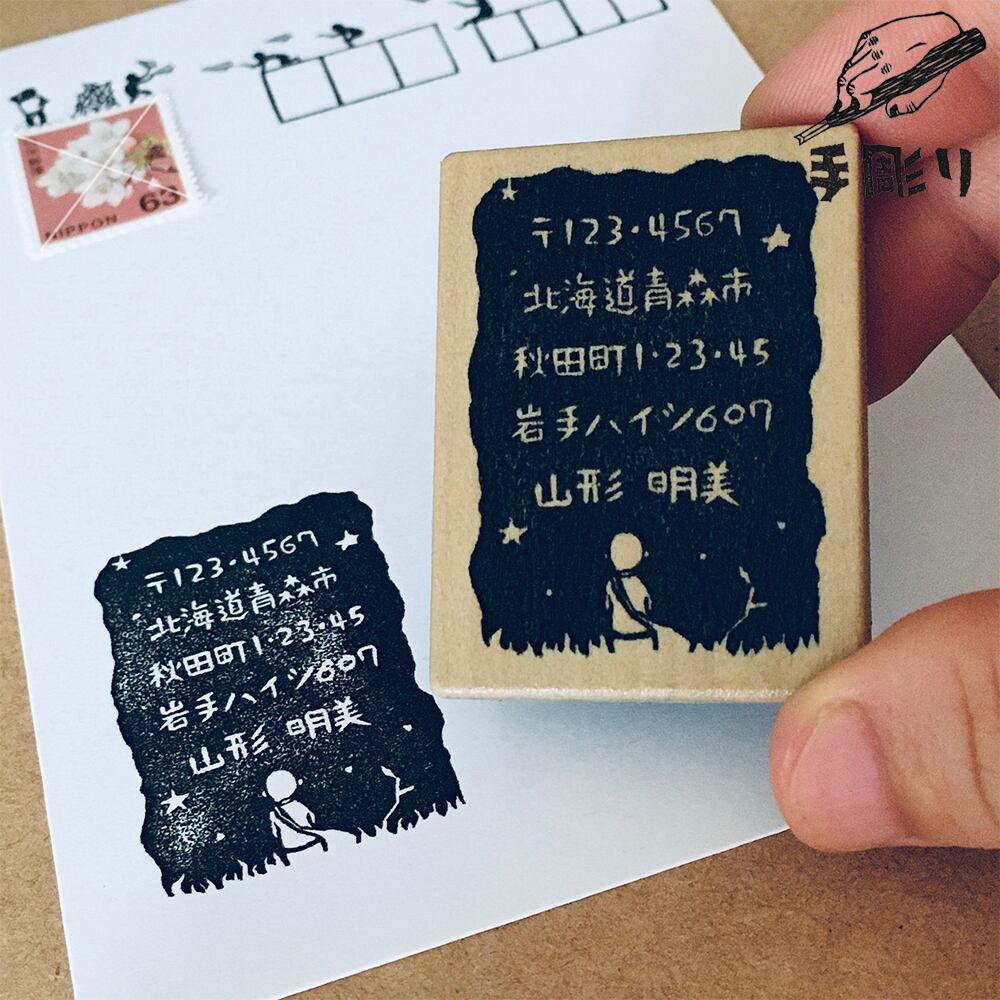 手彫リ
NIPPON 63
〒123・4567
北海道青森市
秋田町1・23・45
岩手ハイツ607
山形 明美
〒123・4567
北海道青森市
秋田町1・23・45
岩手ハイツ607
山形 明美